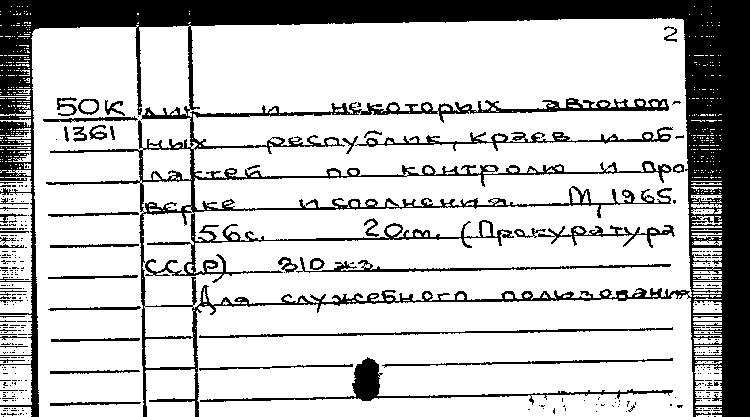 2
50К лик и некоторых автоном-
1361 ных республик, краев и об-
ластей по контролю и про
верке исполнения. М, 1965.
56с. 20см. (Прокуратура
СССР) 310 экз.
Для служебного пользования